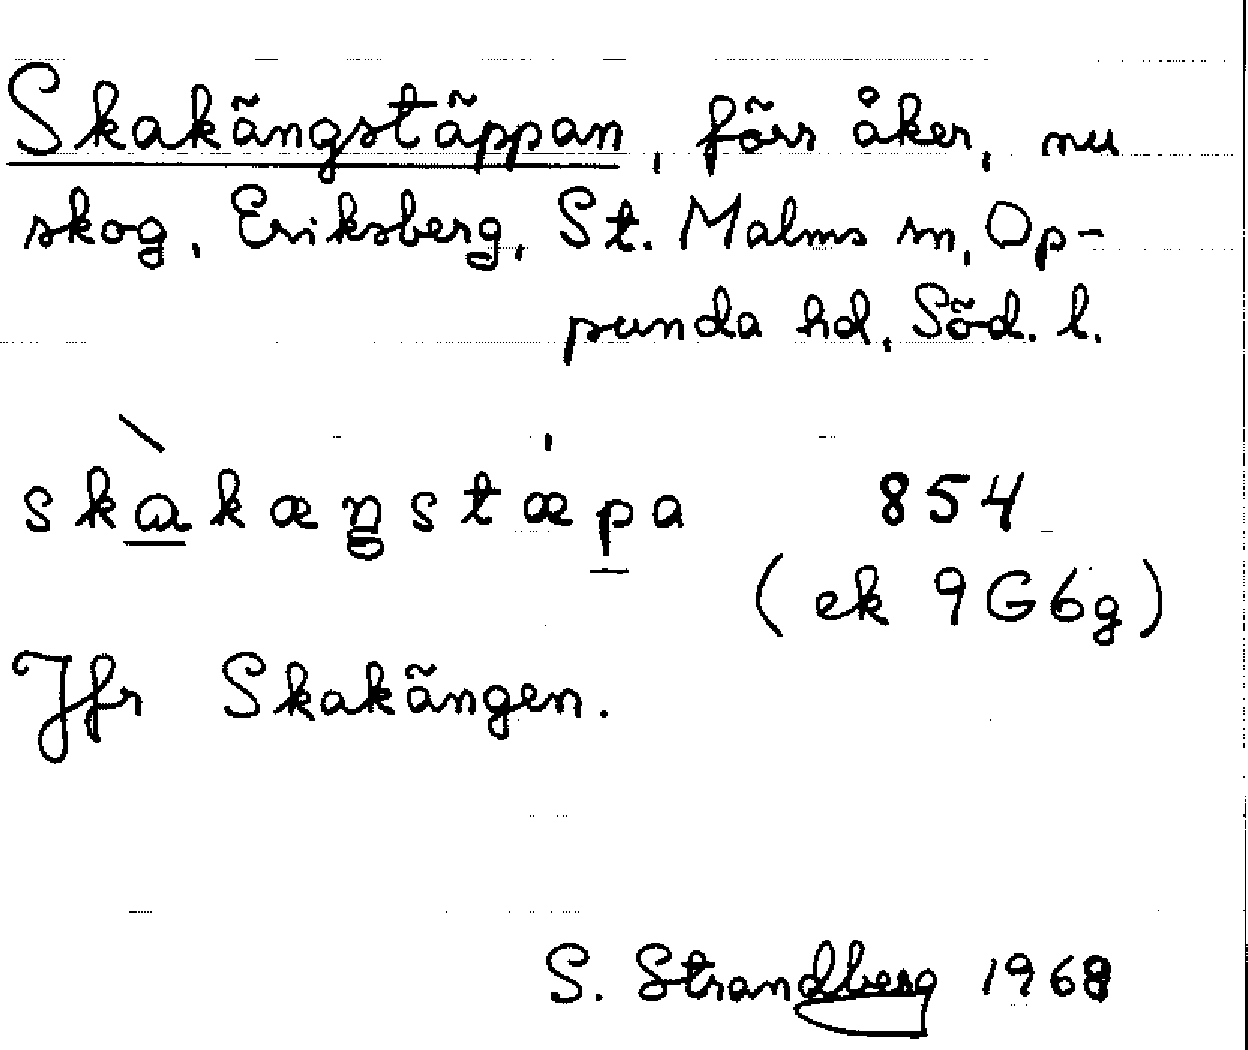 Skakängstäppan, förr åker, nu
skog, Eriksberg, St. Malms sn, Op-
punda hd, Söd. l.
skàkæŋstæpa 854
(ek 9G6g)
Jfr Skakängen.
S. Strandberg